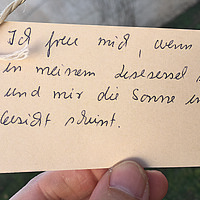 Ich freu mich, wenn
in meinem Lesesessel
und mir die Sonne in
Gesicht scheint.